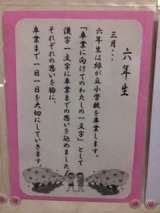 六年生
三月…
六年生は緑が丘小学校を卒業します。
「卒業に向けてのわたしの一文字」として
漢字一文字に卒業までの思いを込めました。
それぞれの思いを胸に、
卒業まで一日一日を大切にしていきます。